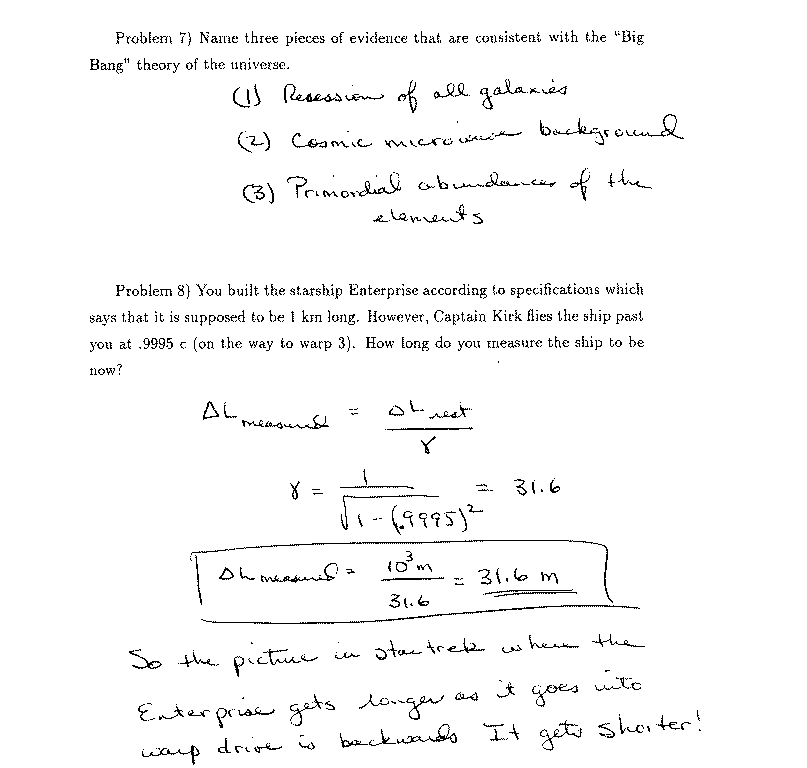 Problem 7) Name three pieces of evidence that are consistent with the "Big
Bang" theory of the universe.
(1) Recession of all galaxies
(2) Cosmic microwave background
(3) Primordial abundances of the
elements
Problem 8) You built the starship Enterprise according to specifications which
says that it is supposed to be 1 km long. However, Captain Kirk flies the ship past
you at .9995 c (on the way to warp 3). How long do you measure the ship to be
now?
ΔL measured = ΔL rest / γ
γ = 1 / √(1 - (.9995)²) = 31.6
ΔL measured = 10³ m / 31.6 = 31.6 m
So the picture in star trek where the
Enterprise gets longer as it goes into
warp drive is backwards It gets shorter!